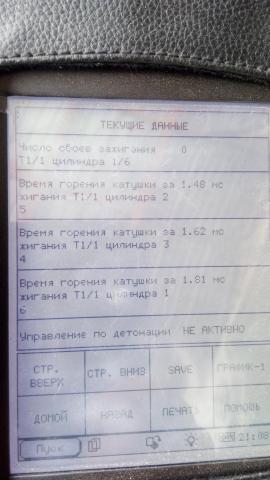 ТЕКУЩИЕ ДАННЫЕ
Число сбоев зажигания 0
Т1/1 цилиндра 1/6
Время горения катушки за 1.48 мс
жигания Т1/1 цилиндра 2
5
Время горения катушки за 1.62 мс
жигания Т1/1 цилиндра 3
4
Время горения катушки за 1.81 мс
жигания Т1/1 цилиндра 1
6
Управление по детонации НЕ АКТИВНО
СТР. ВВЕРХ
СТР. ВНИЗ
SAVE
ГРАФИК-1
ДОМОЙ
НАЗАД
ПЕЧАТЬ
ПОМОЩЬ
Пуск
21:08